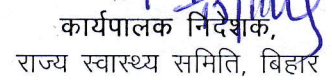 कार्यपालक निदेशक,
राज्य स्वास्थ्य समिति, बिहार